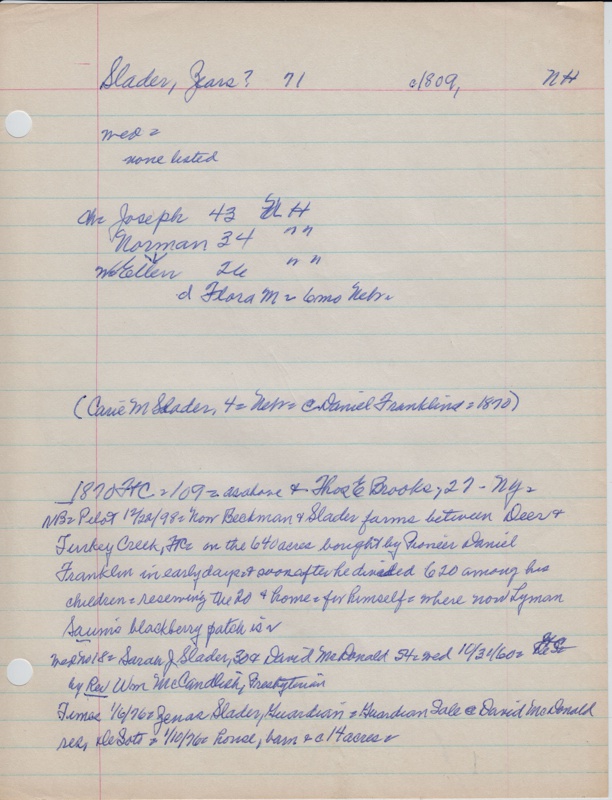 Slader, Zears? 71 c1809, NH
med =
none listed
ch= Joseph 43 NH
Norman 34 " "
w Ellen 26 " "
d Flora M = 6mo Nebr=
(Carie M Slader, 4= Nebr= c Daniel Franklins = 1870)
1870 FtC = 109 = as above & Thos E Brooks, 27 - Ny=
NB= Pilot 12/20/98= Now Beckman & Slader farms between Deer &
Turkey Creek, FtC= on the 640 acres bought by Pioneer Daniel
Franklin in early days & soon after he divided 620 among his
children = reserving the 20 & home = for himself = where now Lyman
Saum's blackberry patch is
med no 18= Sarah J. Slader, 30 & David McDonald 54= med 10/31/60=
by Rev Wm McCandlish, Presbyterian
Times 1/6/76= Zenas Slader, Guardian = Guardian Sale c David McDonald
res, DeSoto = 1/10/76= house, barn & c 14 acres